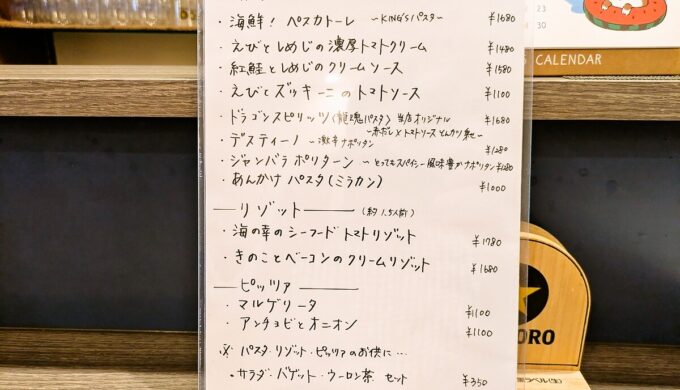 ・海鮮! ペスカトーレ 〜KING'Sパスタ〜 ¥1680
・えびとしめじの濃厚トマトクリーム ¥1480
・紅鮭としめじのクリームソース ¥1580
・えびとズッキーニのトマトソース ¥1100
・ドラゴンスピリッツ(龍魂パスタ) 当店オリジナル ¥1680
〜赤だし×トマトソース とんかつ乗せ〜
・デスティーノ 〜激辛ナポリタン ¥1280
・ジャンバラ ポリターン 〜とってもスパイシー風味豊かナポリタン ¥1280
・あんかけパスタ(ミラカン) ¥1000
リゾット (約1.5人前)
・海の幸のシーフードトマトリゾット ¥1780
・きのことベーコンのクリームリゾット ¥1680
ピッツァ
・マルゲリータ ¥1100
・アンチョビとオニオン ¥1100
※ パスタ・リゾット・ピッツァのお供に…
・サラダ・バゲット・ウーロン茶 セット ¥350
23
30
CALENDAR
ORO
ラベル(生)